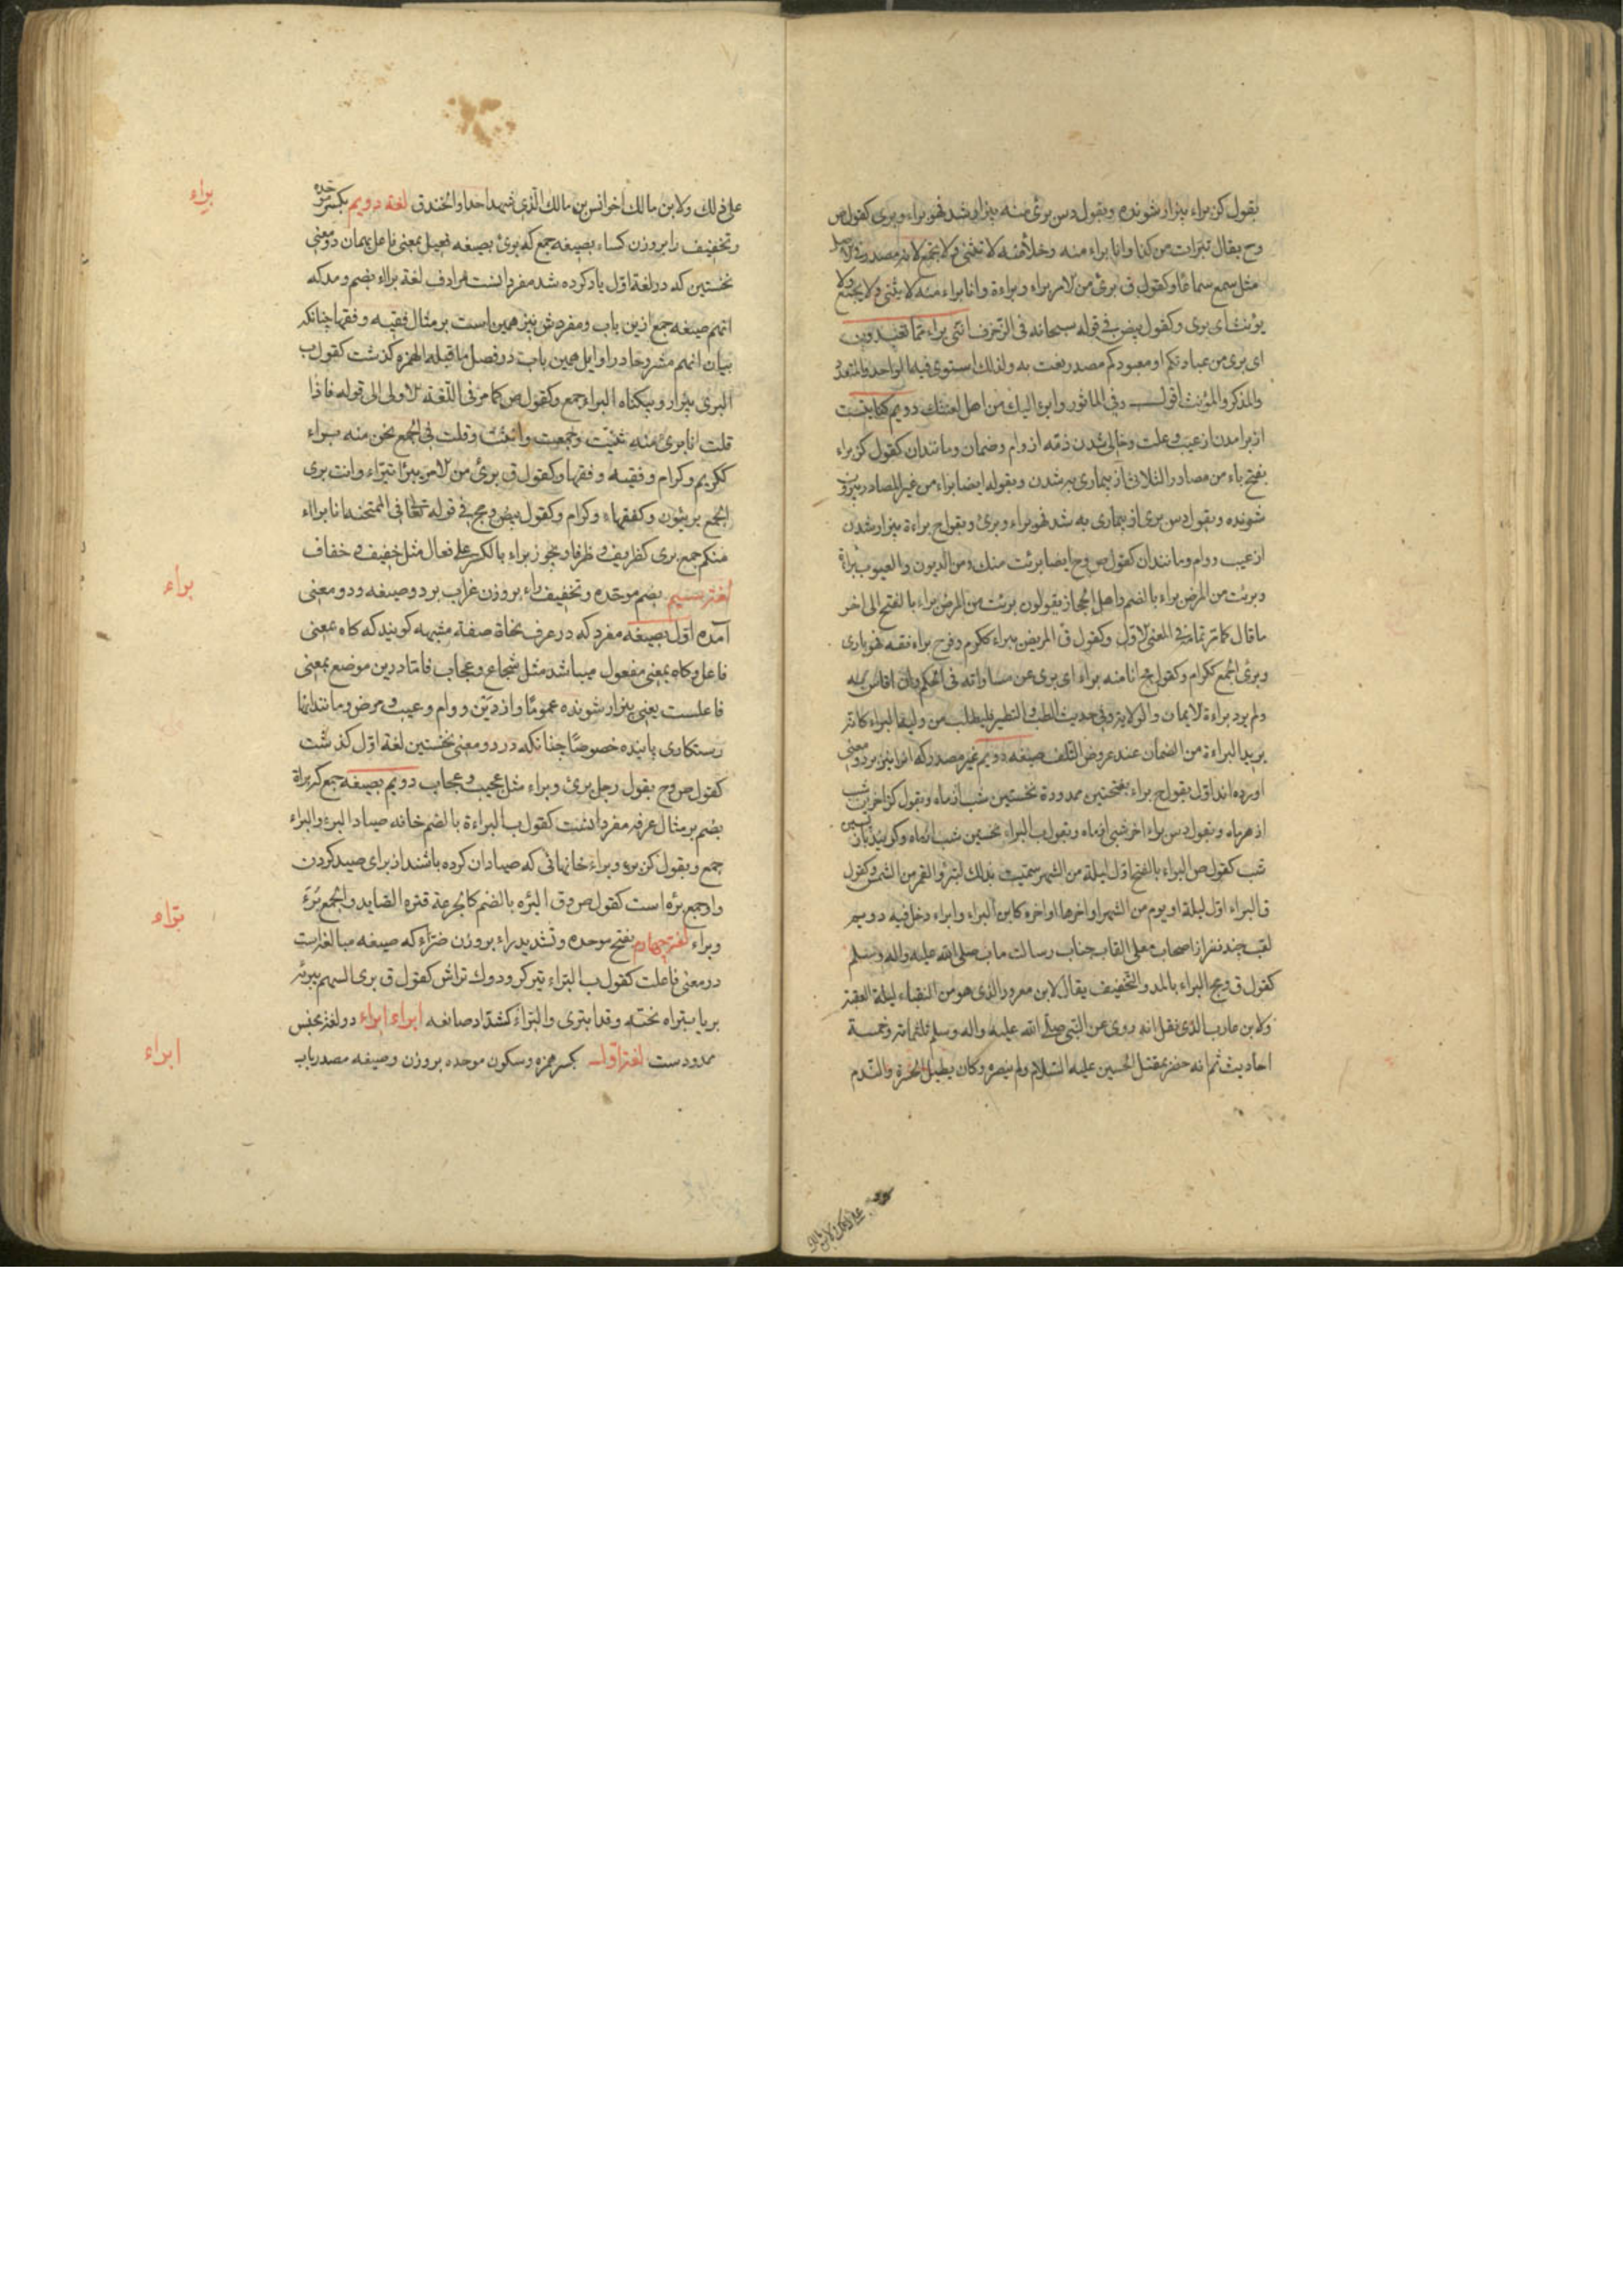 بقول کن براء بیزار شونده وبقول دس برئ منه بیزار شد فهو براء وبری کقول ص
وح یقال تبرات من کذا وانا براء منه وخلاء منه لا یثنی ولا یجمع لانه مصدر فی الاصل
مثل سمع سماعا وکقول ق برئ من الامر براء وبراءة وانا براء منه لا یثنی ولا یجمع ولا
یؤنث ای بری وکقول بیض فی قوله سبحانه فی الزخرف اننی براء مما تعبدون
ای بری من عبادتکم او معبودکم مصدر نعت به ولذلک استوی فیه الواحد والمتعدد
والمذکر والمؤنث اقول وفی الماثور وابرئ الیک من اهل لعنتک دویم
از برامدن از عیب وعلت وخالی شدن ذمه از وام وضمان ومانندان کقول کز براء
بفتح باء من مصادر الثلاثی از بیماری به شدن وبقوله ایضا براء من غیر المصادر بیزار
شونده وبقول دس بری از بیماری به شد فهو براء وبرئ وبقول ح براءة بیزار شدن
از عیب ووام ومانندان کقول ص وح ایضا برئت منک ومن الدیون والعیوب براءة
وبرئت من المرض براء بالضم واهل الحجاز یقولون برئت من المرض براء بالفتح الی اخر
ما قال کما مر تمامه فی المعنی الاول وکقول ق المریض یبراء ککرم وفرح براء نقه فهو باری
وبرئ الجمع ککرام وکقول مج انا منه براء ای بری عن مساواته فی الحکم وان اقاس به
ولم یرد براءة الایمان والولایة وفی حدیث الطب والتطبیر فلیطلب من ولیه البراء کانه
یرید البراءة من الضمان عند عروض التلف صیغه دویم غیر مصدر که انرا نیز بر دو معنی
اورده اند اول بقول ح براء بفتحتین ممدودة نخستین شب از ماه وبقول کز اخرین شب
از هر ماه وبقول دس براء اخر شبی از ماه وبقول ب البراء نخستین شب از ماه وکویند پسین
شب کقول ص البراء بالفتح اول لیلة من الشهر سمیت بذلک لتبرؤ القمر من الشمس وکقول
ق البراء اول لیلة او یوم من الشهر او اخرها او اخره کابن البراء وابراء دخل فیه دویم
لقب چند نفر از اصحاب معلی القاب جناب رسالت ماب صلی الله علیه واله وسلم
کقول ق ومج البراء بالمد والتخفیف یقال لابن معرور الذی هو من النقباء لیلة العقبة
ولابن عازب الذی نقل انه روی عن النبی صلی الله علیه واله وسلم ثلثمائه وخمسة
احادیث ثم انه حضر مقتل الحسین علیه السلام ولم ینصره وکان یطیل الحسرة والندم
علی ذلک ولابن مالک
علی ذلک ولابن مالک اخو انس بن مالک الذی شهد احدا والخندق لغة دویم بکسر موحده
وتخفیف را بروزن کساء بصیغه جمع که برئ بصیغه فعیل بمعنی فاعل بهمان دو معنی
نخستین که در لغة اول یاد کرده شد مفرد انست مرادف لغة براء بضم ومد که
انهم صیغه جمع ازین باب ومفردش نیز همین است بر مثال فقیه وفقها چنانکه
بیان انهم مشروحا در اوایل همین باب در فصل ما قبله الهمزه کذشت کقول ب
البری بیزار وبیکناه البراء جمع وکقول ص کما مر فی اللغة الاولی الی قوله فاذا
قلت انا بری منه ثنیت وجمعت وانثت وقلت فی الجمع نحن منه براء
ککریم وکرام وفقیه وفقها وکقول ق برئ من الامر یبرا تبراء وانت بری
الجمع بریئون وکفقهاء وکرام وکقول بیض ومج فی قوله تعالی فی الممتحنه انا براء
منکم جمع بری کظریف وظرفا ویجوز براء بالکسر علی فعال مثل خفیف وخفاف
لغة سیم بضم موحده وتخفیف راء بروزن غراب بر دو صیغه ودو معنی
آمده اول بصیغه مفرد که در عرف نحاة صفة مشبهه کویند که کاه بمعنی
فاعل وکاه بمعنی مفعول میباشد مثل شجاع وعجاب فاما درین موضع بمعنی
فاعلست یعنی بیزار شونده عموما واز دین ووام وعیب ومرض ومانندانها
رستکاری یابنده خصوصا چنانکه در دو معنی نخستین لغة اول کذشت
کقول ص وح بقول رجل برئ وبراء مثل عجیب وعجاب دویم بصیغه جمع که براة
بضم بر مثال غرفه مفرد انست کقول ب البراءة بالضم خانه صیاد البرء والبراء
جمع وبقول کن برء وبراء خانهائی که صیادان کرده باشند از برای صید کردن
واد جمع برءه است کقول ص وق البرءه بالضم کالجرعة قتره الصاید والجمع برء
وبراء لغة چهارم بفتح موحده وتشدید راء بروزن ضراء که صیغه مبالغه است
در معنی فاعلت کقول ب البراء تیرکر ودوک تراش کقول ق بری السهم یبریه
بریا وبتراه نحته وقد ابتری والبراء کشداد صانعه ابراء ابراء دو لغة بجنس
ممدودست لغة اول بکسر همزه وسکون موحده بروزن وصیغه مصدر باب
براء
براء
براء
ابراء